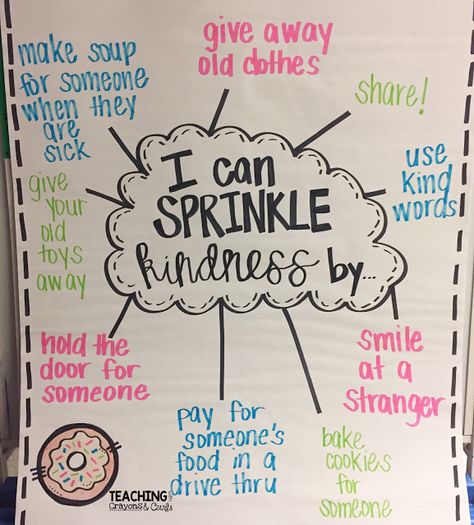 I can
SPRINKLE
kindness by...
make soup
for someone
when they
are
sick
give away
old clothes
share!
use
kind
words
smile
at a
stranger
bake
cookies
for
someone
pay for
someone's
food in a
drive thru
hold the
door for
someone
give
your
old
toys
away
TEACHING with
Crayons & Curls